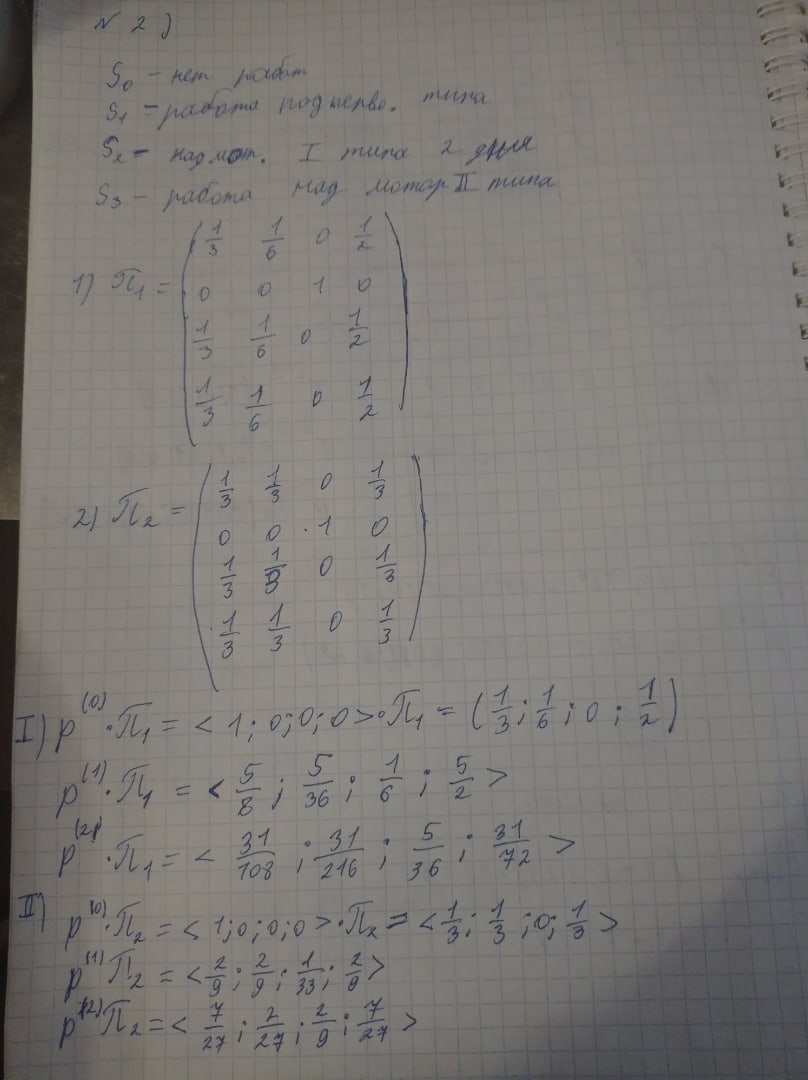 N 2)
S₀ – нет работ
S₁ = работа под перво. типа
S₂ – над мот. I типа 2 дня
S₃ – работа над мотор II типа
1) П₁ = ( 1/3 1/6 0 1/2
0 0 1 0
1/3 1/6 0 1/2
1/3 1/6 0 1/2 )
2) П₂ = ( 1/3 1/3 0 1/3
0 0 1 0
1/3 1/3 0 1/3
1/3 1/3 0 1/3 )
I) p⁽⁰⁾·П₁ = <1; 0; 0; 0>·П₁ = (1/3; 1/6; 0; 1/2)
p⁽¹⁾·П₁ = <5/8; 5/36; 1/6; 5/2>
p⁽²⁾·П₁ = <31/108; 31/216; 5/36; 31/72>
II) p⁽⁰⁾·П₂ = <1; 0; 0; 0>·П₂ = <1/3; 1/3; 0; 1/3>
p⁽¹⁾П₂ = <2/9; 2/9; 1/33; 2/9>
p⁽²⁾П₂ = <7/27; 2/27; 2/9; 7/27>